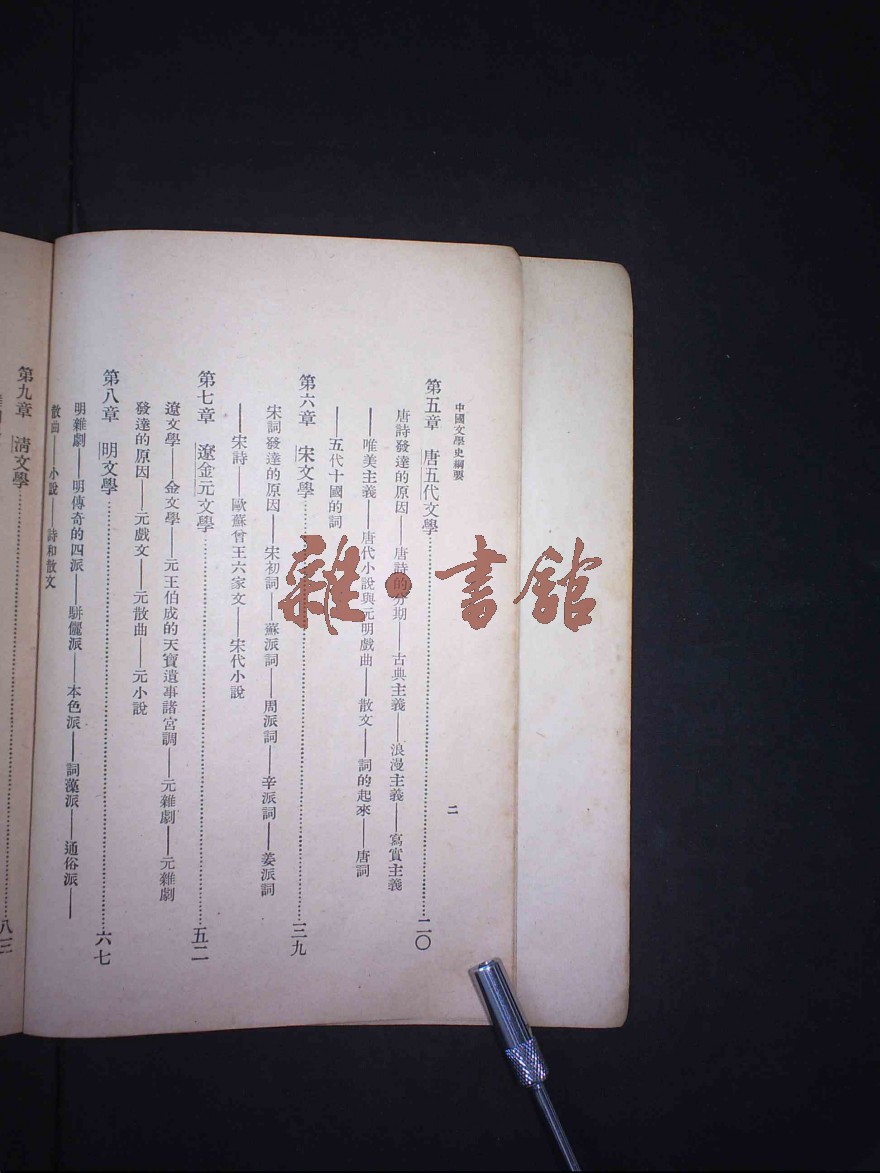 中國文學史綱要
二
第五章 唐五代文學……二〇
唐詩發達的原因——唐詩的分期——古典主義——浪漫主義——寫實主義
——唯美主義——唐代小說與元明戲曲——散文——詞的起來——唐詞
——五代十國的詞
第六章 宋文學……三九
宋詞發達的原因——宋初詞——蘇派詞——周派詞——辛派詞——姜派詞
——宋詩——歐蘇曾王六家文——宋代小說
第七章 遼金元文學……五二
遼文學——金文學——元王伯成的天寶遺事諸宮調——元雜劇——元雜劇
發達的原因——元戲文——元散曲——元小說
第八章 明文學……六七
明雜劇——明傳奇的四派——駢儷派——本色派——詞藻派——通俗派——
散曲——小說——詩和散文
第九章 清文學……八三
雜·書館